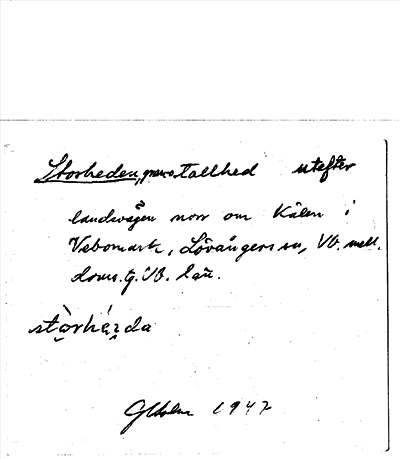 Storheden, tallhed utefter
landsvägen norr om Kälen i
Vebomark, Lövångers sn, Vb. mell.
doms. g. Vb. län.
stòrhé̱da
GHolm 1947